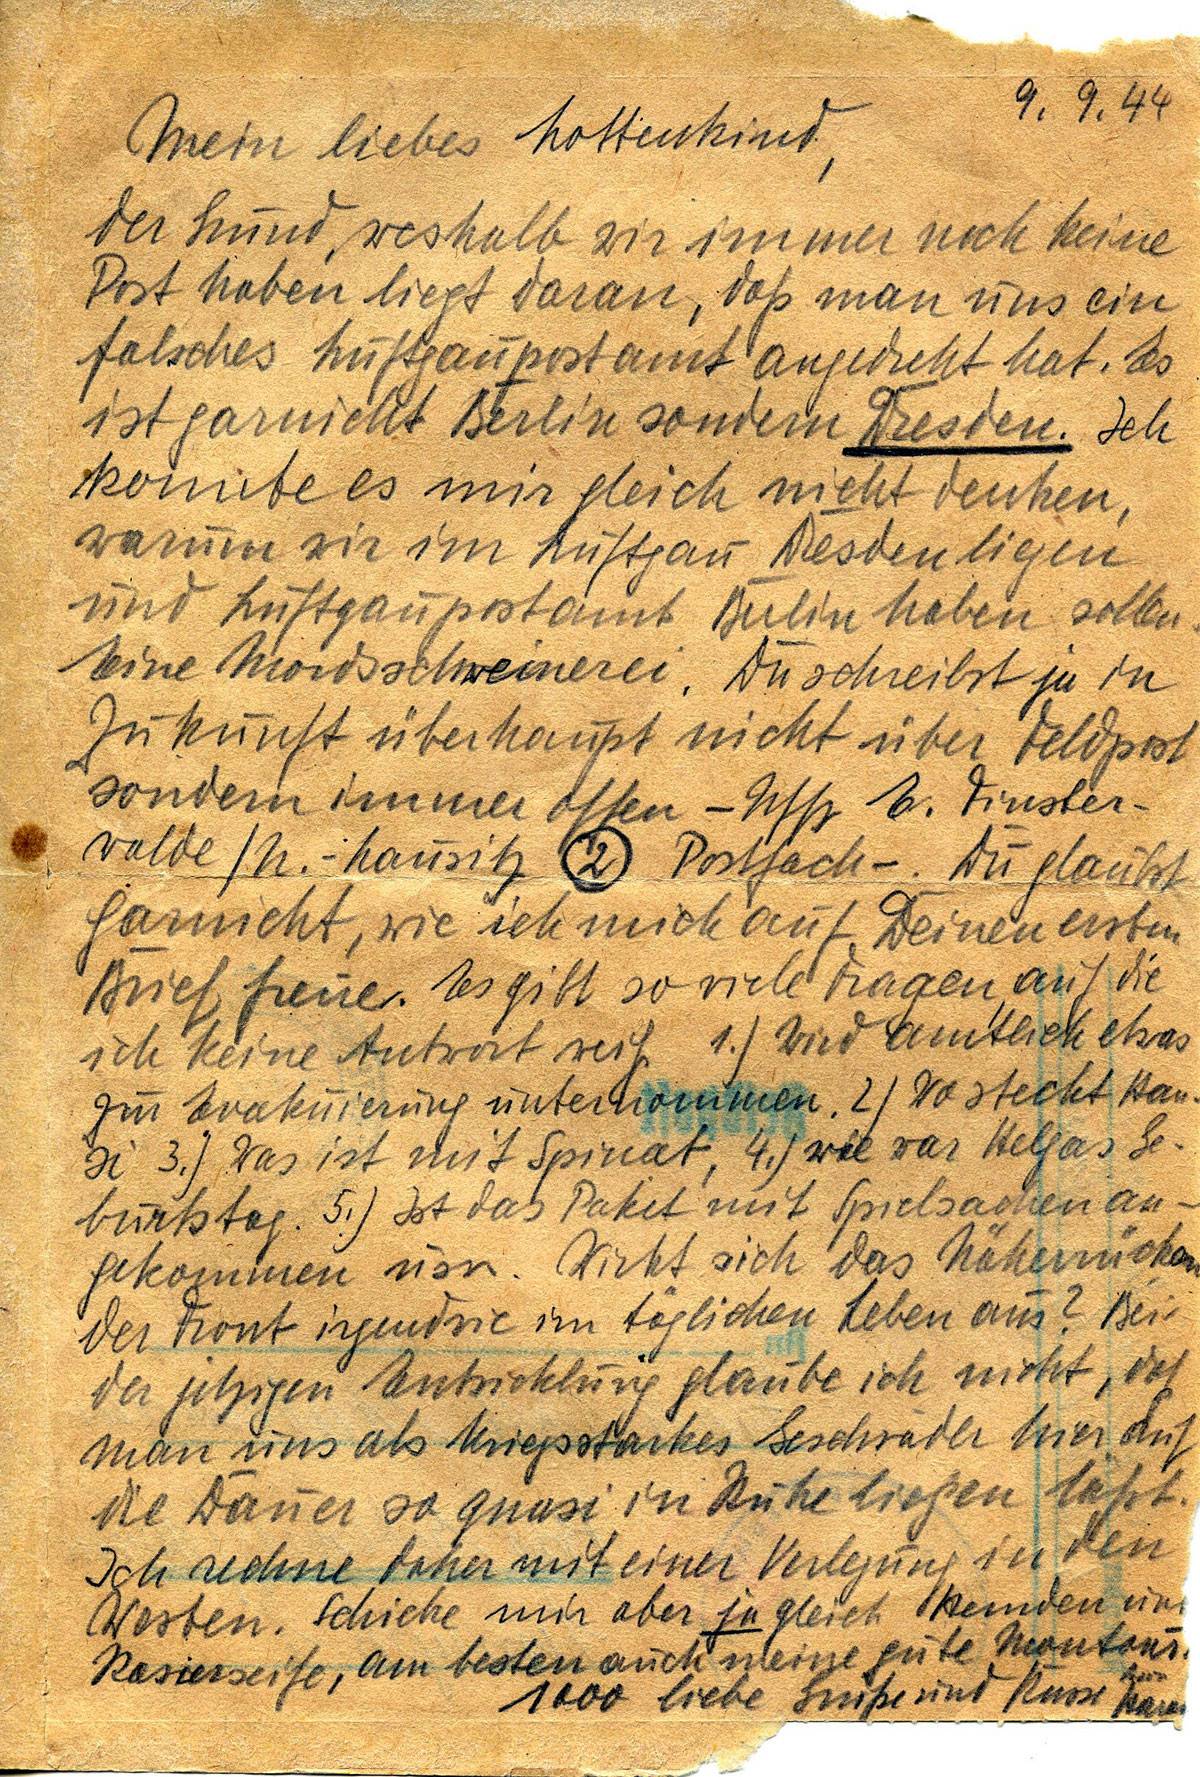 9. 9. 44
Mein liebes Lottenkind,
der Grund, weshalb wir immer noch keine
Post haben liegt daran, daß man uns ein
falsches Luftgaupostamt angedreht hat. Es
ist garnicht Berlin sondern Dresden. Ich
konnte es mir gleich nicht denken,
warum wir im Luftgau Dresden liegen
und Luftgaupostamt Berlin haben sollen.
Eine Mordsschweinerei. Du schreibst ja in
Zukunft überhaupt nicht über Feldpost
sondern immer offen - Uffz E. Finster-
walde /N.-Lausitz 2 Postfach -. Du glaubst
garnicht, wie ich mich auf Deinen ersten
Brief freue. Es gibt so viele Fragen, auf die
ich keine Antwort weiß 1.) Wird amtlich etwas
zur Evakuierung unternommen. 2) Wo steckt Han-
si 3.) Was ist mit Spinat, 4.) wie war Helgas Ge-
burtstag. 5.) Ist das Paket mit Spielsachen an-
gekommen usw. Wirkt sich das Näherrücken
der Front irgendwie im täglichen Leben aus? Bei
der jetzigen Entwicklung glaube ich nicht, daß
man uns als kriegsstarkes Geschwader hier auf
die Dauer so quasi in Ruhe liegen läßt.
Ich rechne daher mit einer Verlegung in den
Westen. Schicke mir aber ja gleich Hemden und
Rasierseife, am besten auch meine gute
1000 liebe Grüße und Küsse